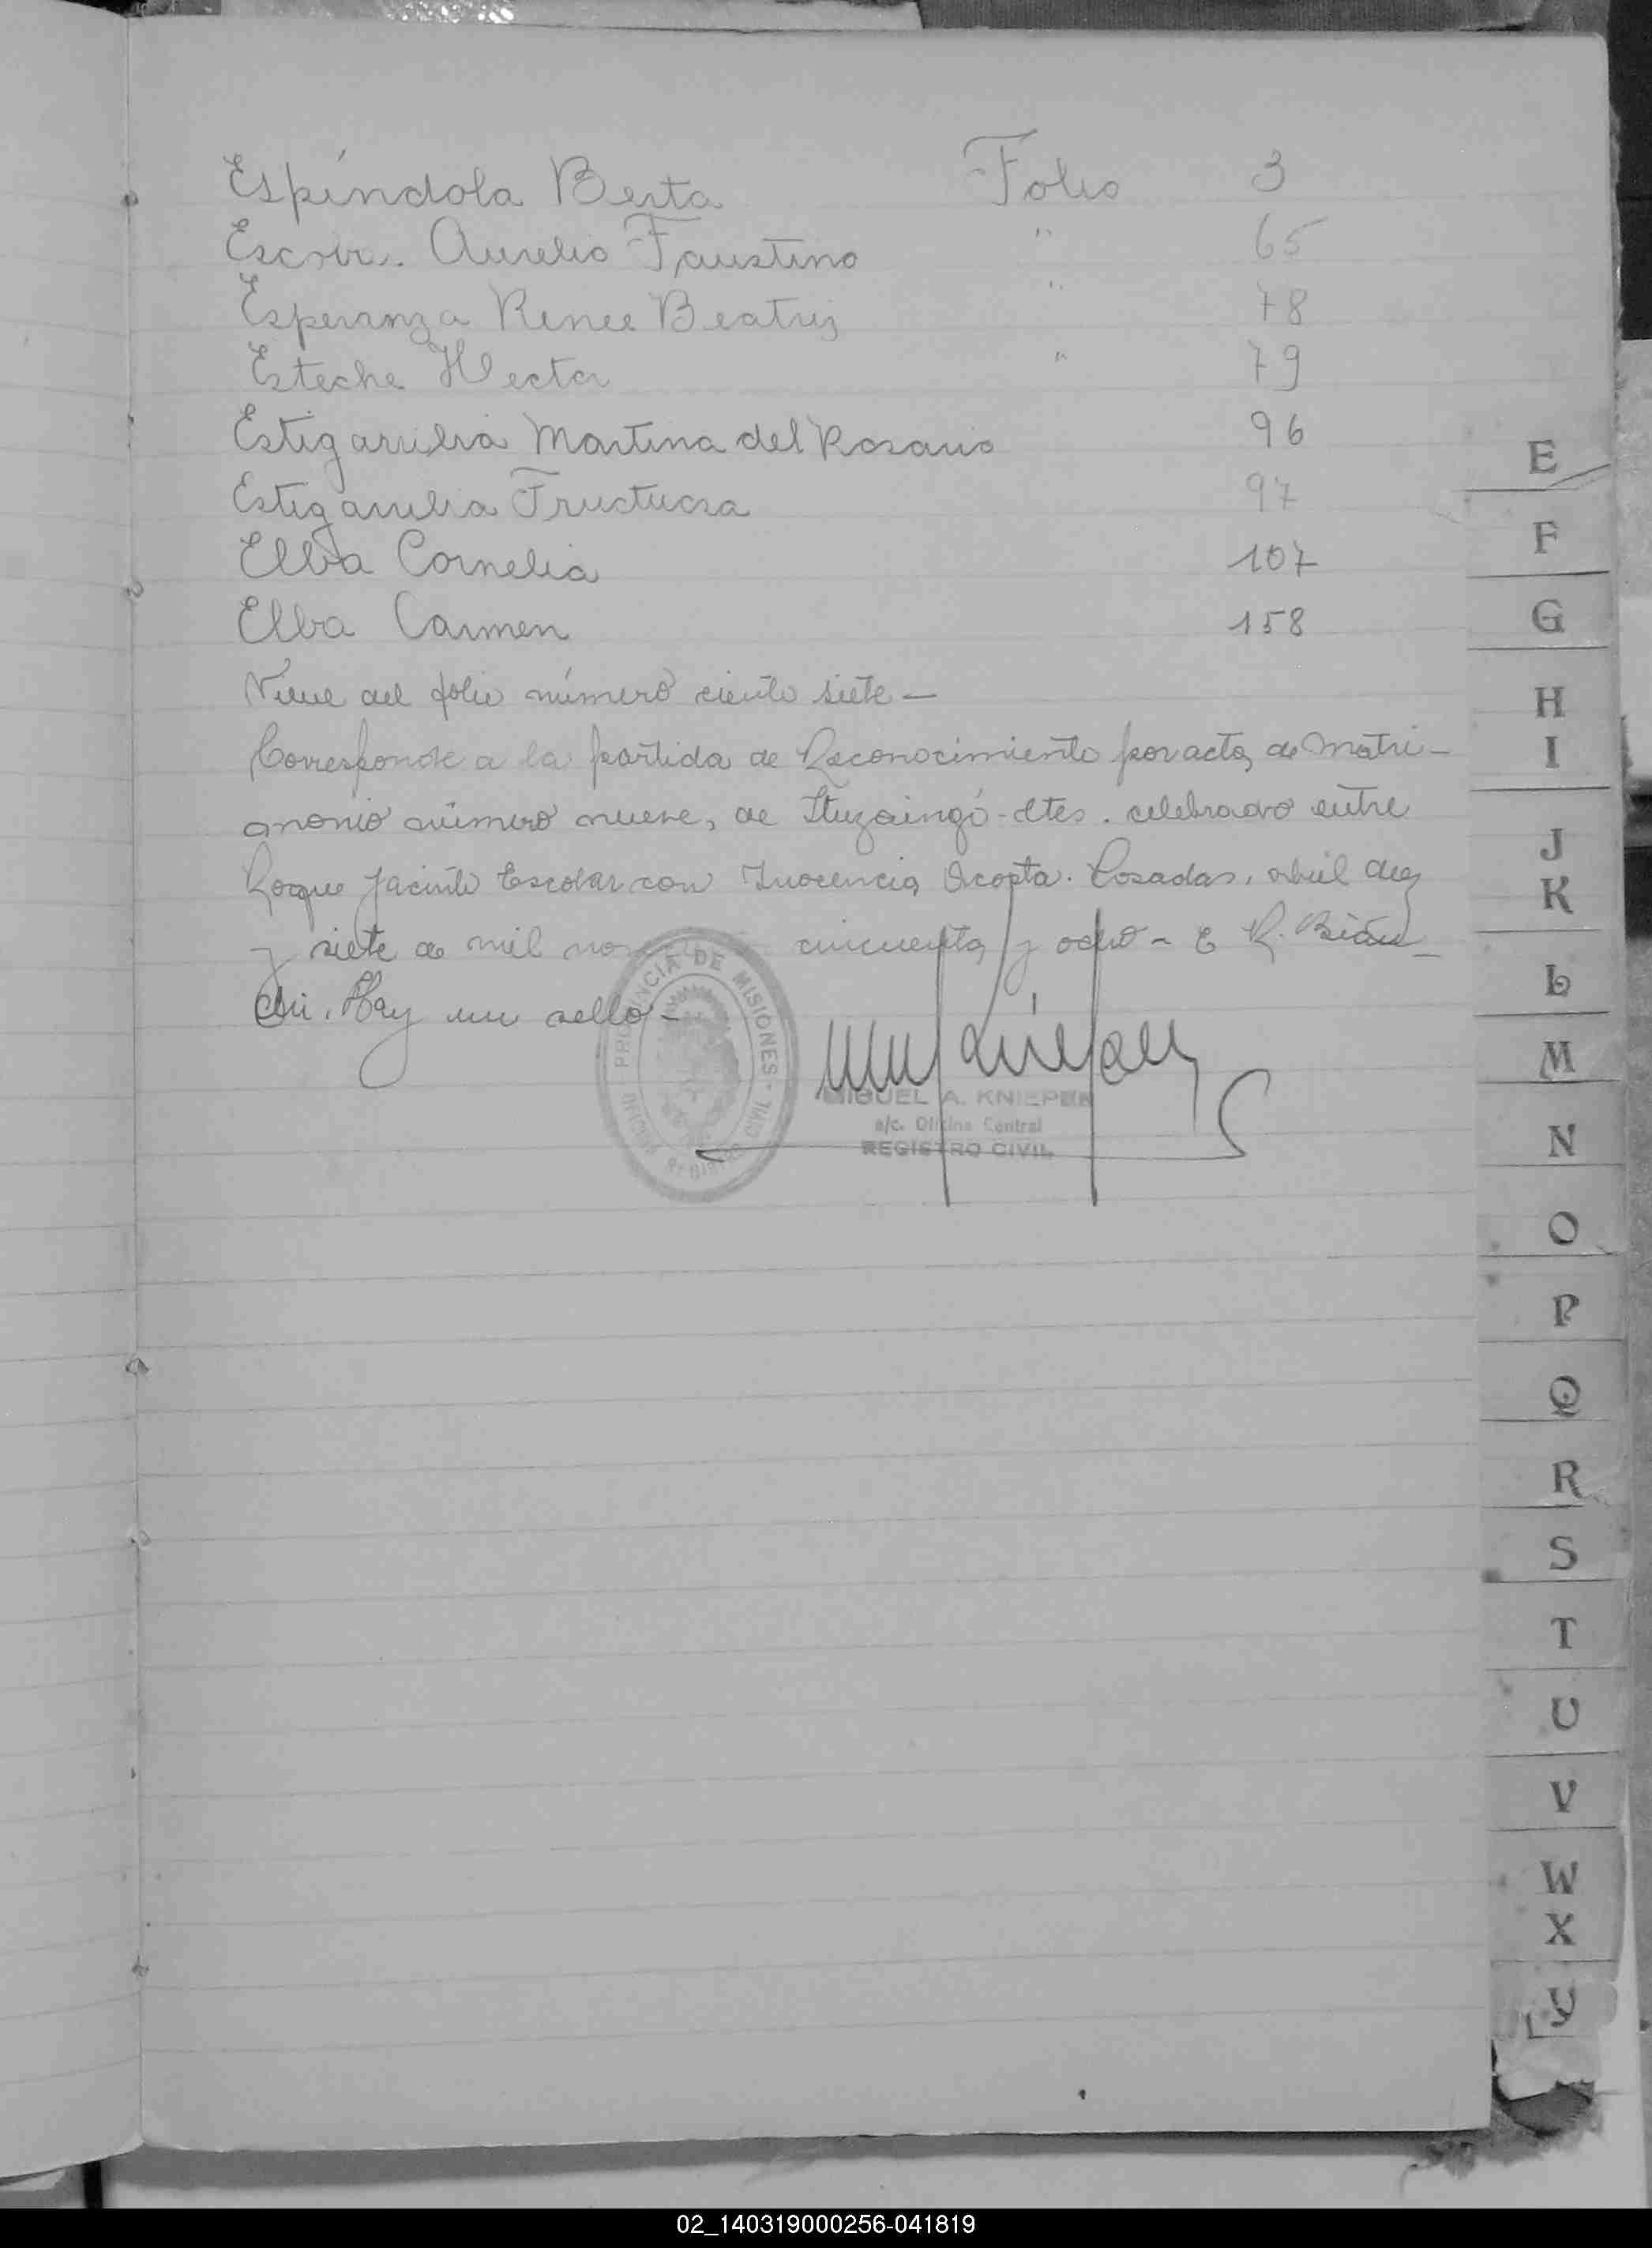 Espíndola Berta Folio 3
Escovar. Aurelio Faustino " 65
Esperanza Renee Beatriz " 78
Esteche Hector " 79
Estigarribia Martina del Rosario 96
Estigarribia Fructuosa 97
Elba Cornelia 107
Elba Carmen 158
Viene del folio número ciento siete —
Corresponde a la partida de Reconocimiento por acta de Matri-
monio número nueve, de Ituzaingó - Ctes. celebrado entre
Roque Jacinto Escobar con Inocencia Acosta. Posadas, abril diez
y siete de mil cincuenta y ocho - E R. Bian-
chi. Hay un sello -
PROVINCIA DE MISIONES - REGISTRO CIVIL
MIGUEL A. KNIEPER
a/c. Oficina Central
REGISTRO CIVIL
E
F
G
H
I
J
K
L
M
N
O
P
Q
R
S
T
U
V
W
X
Y
02_140319000256-041819